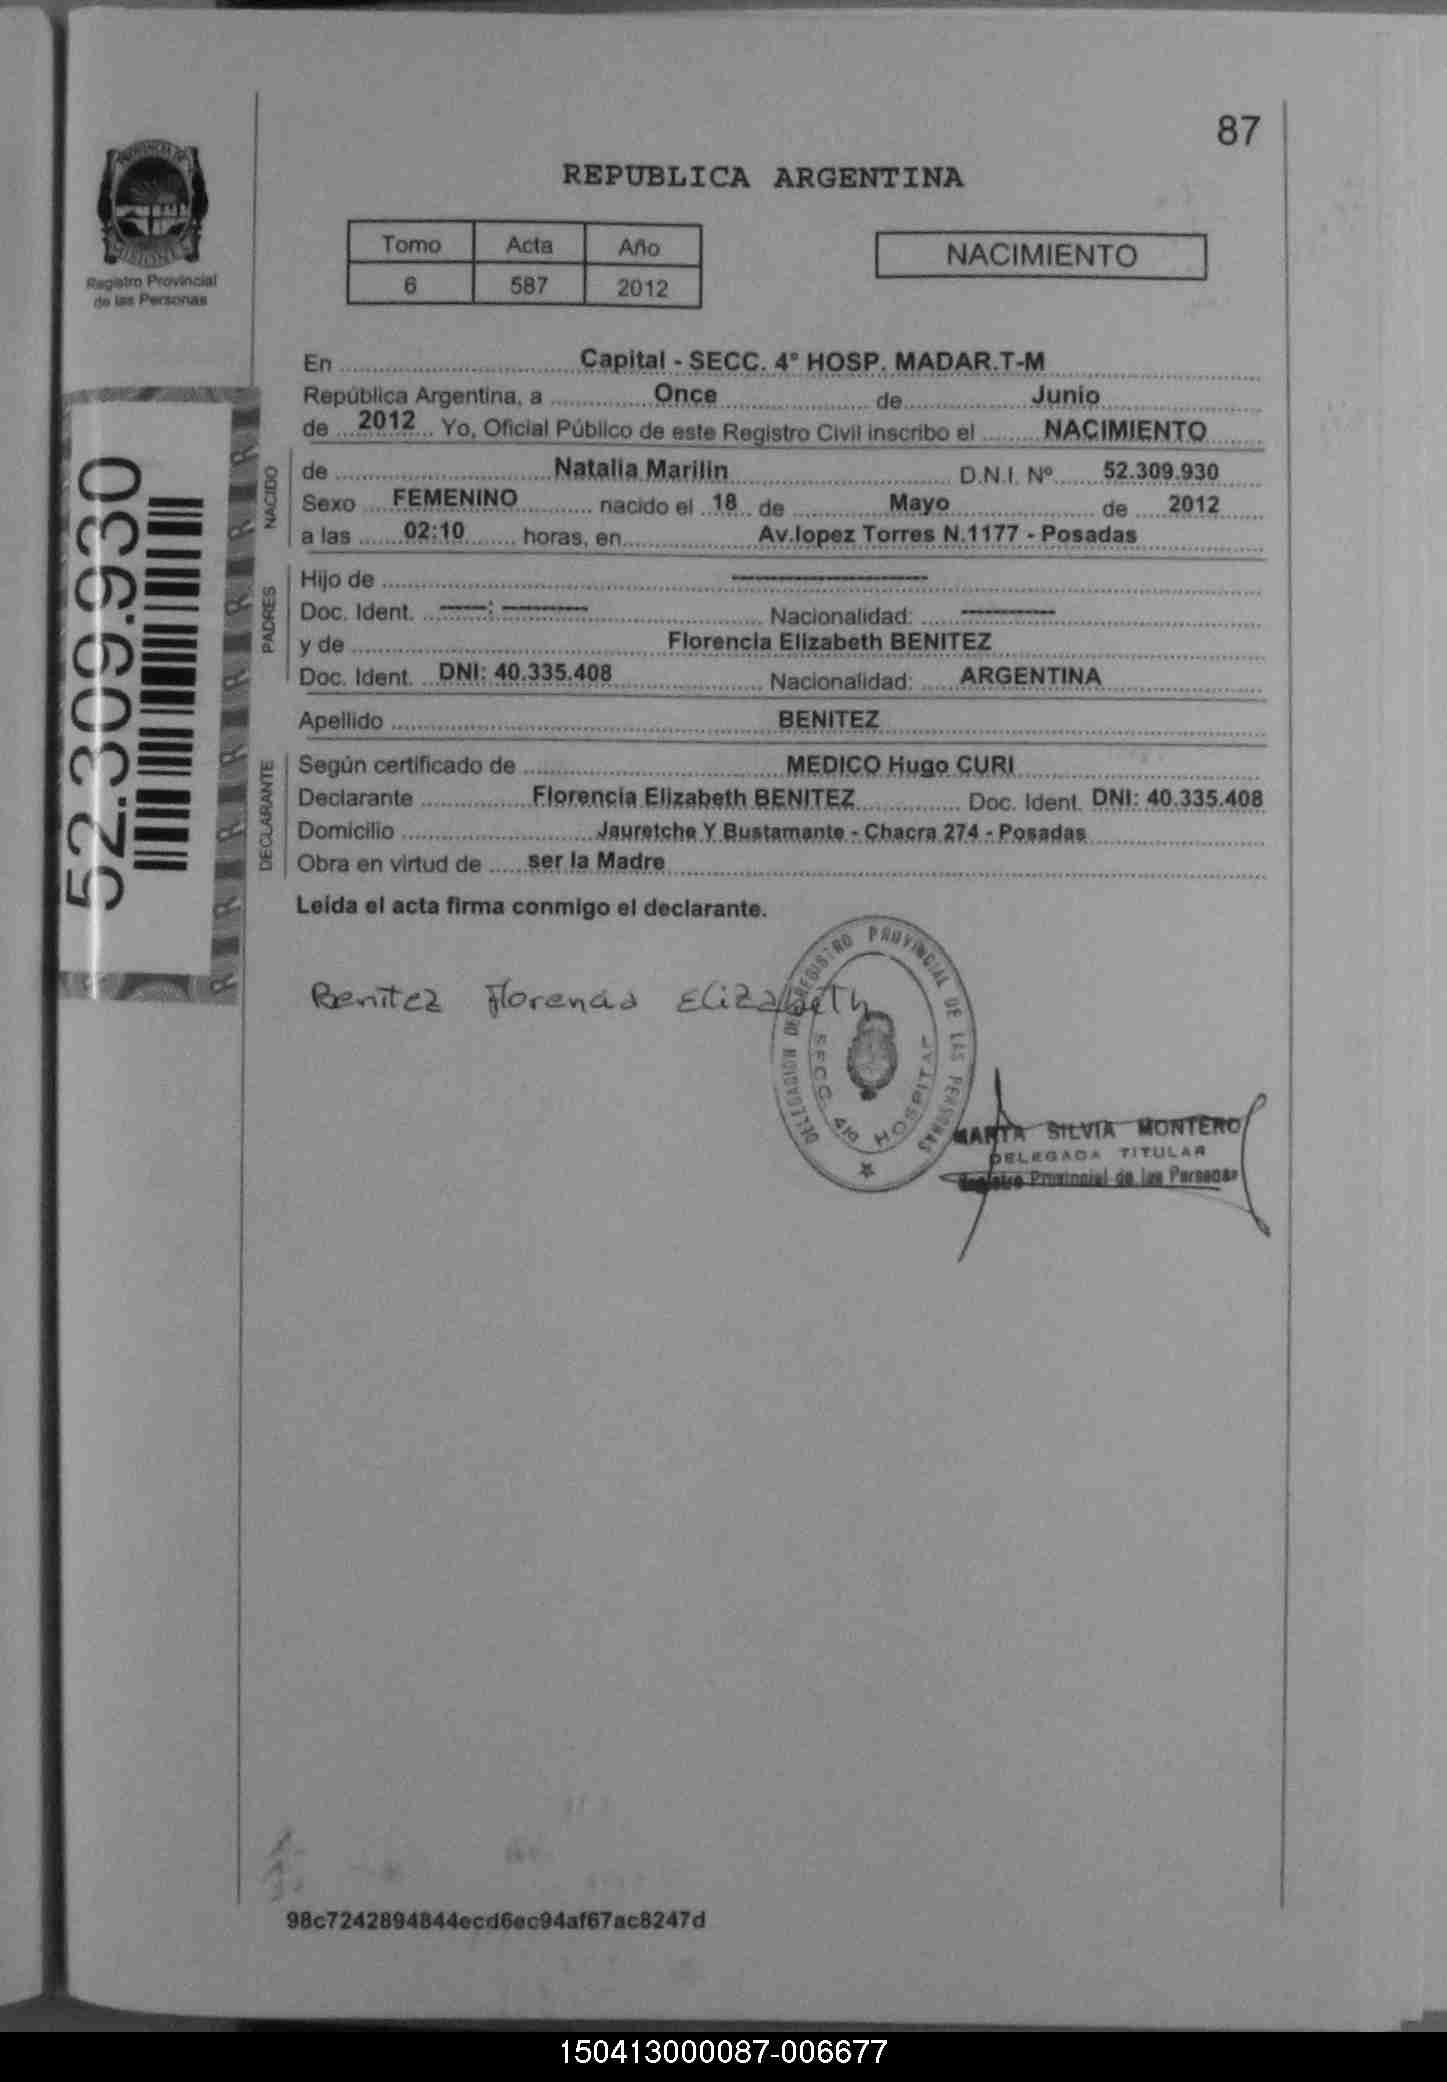 87
PROVINCIA DE
MISIONES
Registro Provincial
de las Personas
REPUBLICA ARGENTINA
Tomo Acta Año
6 587 2012
NACIMIENTO
En Capital - SECC. 4° HOSP. MADAR.T-M
República Argentina, a Once de Junio
de 2012 Yo, Oficial Público de este Registro Civil inscribo el NACIMIENTO
NACIDO
de Natalia Marilin D.N.I. Nº 52.309.930
Sexo FEMENINO nacido el 18 de Mayo de 2012
a las 02:10 horas, en Av.lopez Torres N.1177 - Posadas
PADRES
Hijo de --------------------
Doc. Ident. -----: --------- Nacionalidad: ----------
y de Florencia Elizabeth BENITEZ
Doc. Ident. DNI: 40.335.408 Nacionalidad: ARGENTINA
Apellido BENITEZ
DECLARANTE
Según certificado de MEDICO Hugo CURI
Declarante Florencia Elizabeth BENITEZ Doc. Ident. DNI: 40.335.408
Domicilio Jauretche Y Bustamante - Chacra 274 - Posadas
Obra en virtud de ser la Madre
Leída el acta firma conmigo el declarante.
52.309.930
Benitez Florencia Elizabeth
DELEGACION DEL REGISTRO PROVINCIAL DE LAS PERSONAS
SECC. 4ta HOSPITAL
MARTA SILVIA MONTERO
DELEGADA TITULAR
Registro Provincial de las Personas
98c7242894844ecd6ec94af67ac8247d
150413000087-006677